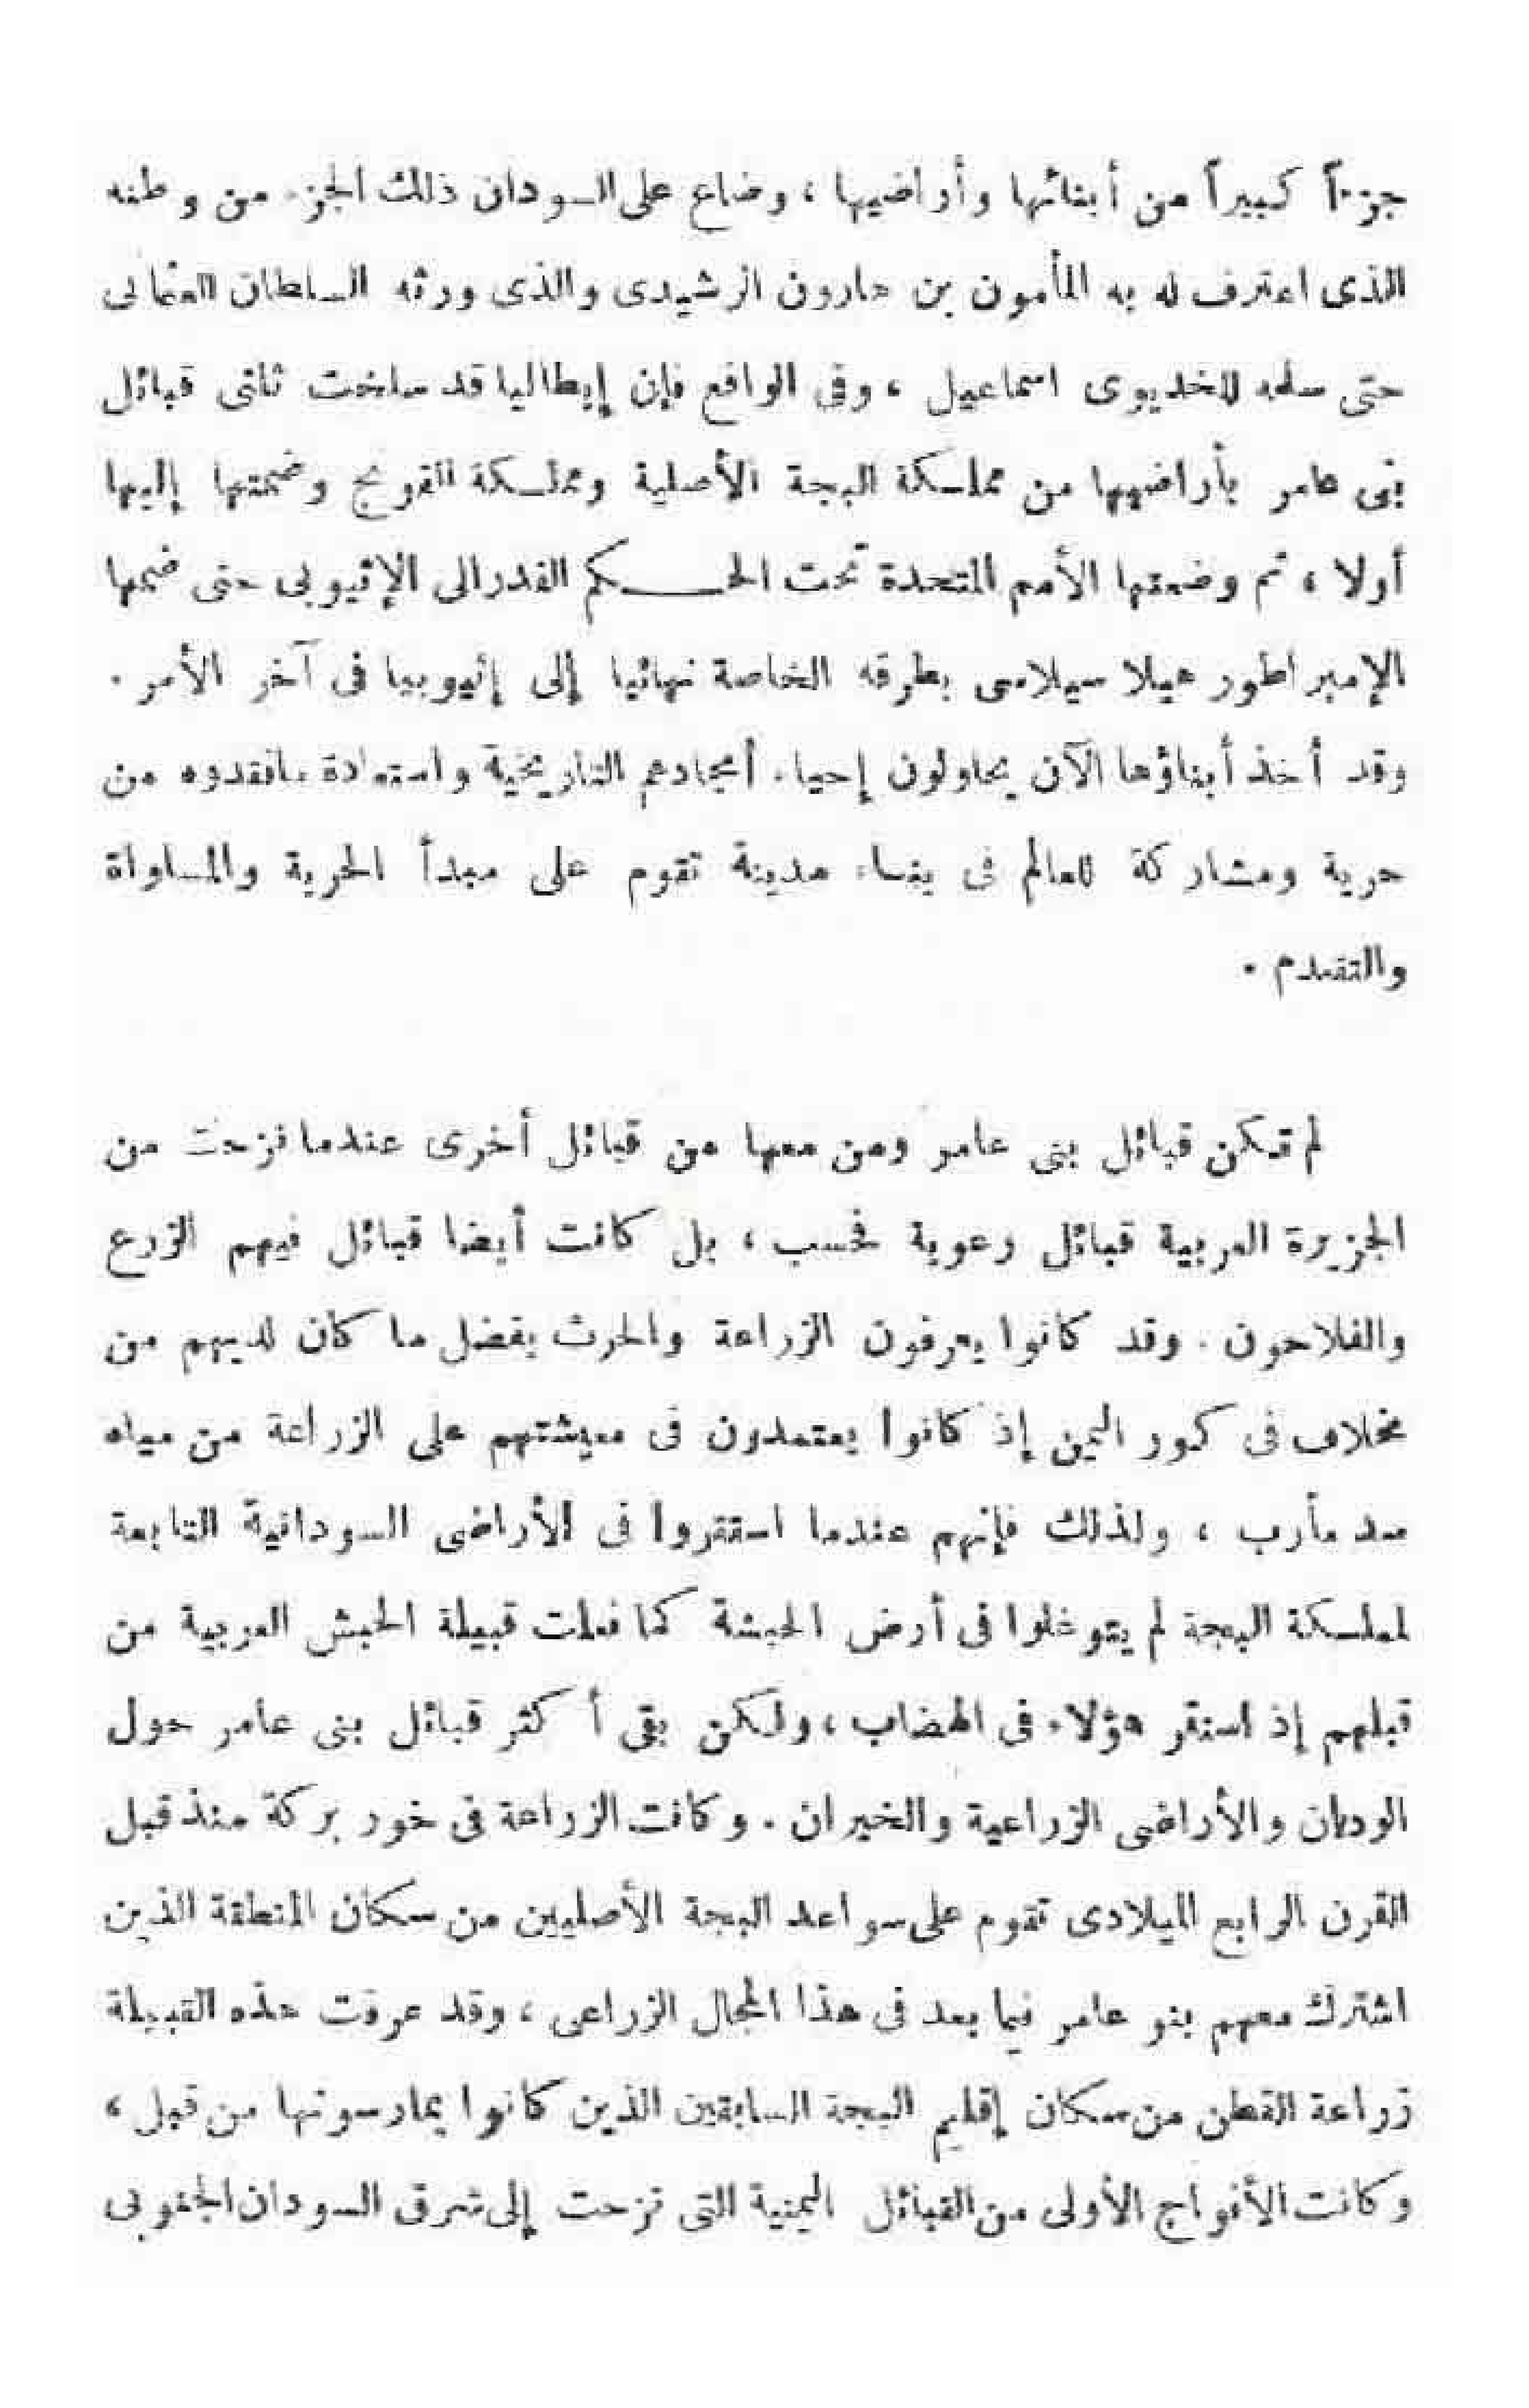 جزءاً كبيراً من أبنائها وأراضيها ، وضاع على السودان ذلك الجزء من وطنه
الذى اعترف له به المأمون بن هارون الرشيدى والذى ورثه السلطان العثمانى
حتى سلمه للخديوى اسماعيل ، وفى الواقع فإن إيطاليا قد سلخت ثلثى قبائل
بنى عامر بأراضيها من مملكة البجة الأصلية ومملكة الفونج وضمتها إليها
أولا ، ثم وضعتها الأمم المتحدة تحت الحكم الفدرالى الإثيوبى حتى ضمها
الإمبراطور هيلا سيلاسى بطرقه الخاصة نهائيا إلى إثيوبيا فى آخر الأمر .
وقد أخذ أبناؤها الآن يحاولون إحياء أمجادهم التاريخية واستعادة مافقدوه من
حرية ومشاركة للعالم فى بناء مدينة تقوم على مبدأ الحرية والمساواة
والتقدم .
لم تكن قبائل بنى عامر ومن معها من قبائل أخرى عندما نزحت من
الجزيرة العربية قبائل رعوية فحسب ، بل كانت أيضا قبائل فيهم الزرع
والفلاحون . وقد كانوا يعرفون الزراعة والحرث بفضل ما كان لديهم من
مخلاف فى كور اليمن إذ كانوا يعتمدون فى معيشتهم على الزراعة من مياه
سد مأرب ، ولذلك فإنهم عندما استقروا فى الأراضى السودانية التابعة
لمملكة البجة لم يتوغلوا فى أرض الحبشة كما فعلت قبيلة الحبش العربية من
قبلهم إذ استقر هؤلاء فى الهضاب ، ولكن بقى أكثر قبائل بنى عامر حول
الوديان والأراضى الزراعية والخيران . وكانت الزراعة فى خور بركة منذ قبل
القرن الرابع الميلادى تقوم على سواعد البجة الأصليين من سكان المنطقة الذين
اشترك معهم بنو عامر فيما بعد فى هذا المجال الزراعى ، وقد عرفت هذه القبيلة
زراعة القطن من سكان إقليم البجة السابقين الذين كانوا يمارسونها من قبل ،
وكانت الأفواج الأولى من القبائل اليمنية التى نزحت إلى شرقى السودان الجنوبى